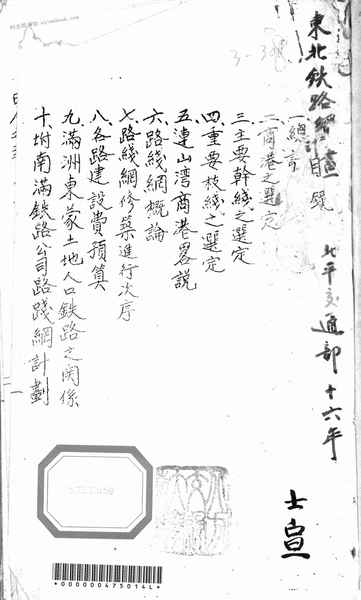 東北鉄路網計畫
目錄
北平交通部十六年
士宣
一、總言
二、商港之選定
三、主要幹綫之選定
四、重要枝綫之選定
五、連山湾商港畧説
六、路綫網概論
七、路綫網修築進行次序
八、各路建設費預算
九、滿洲東蒙土地人口鉄路之関係
十、坿南滿鉄路公司路踐網計劃
*0000004750146*